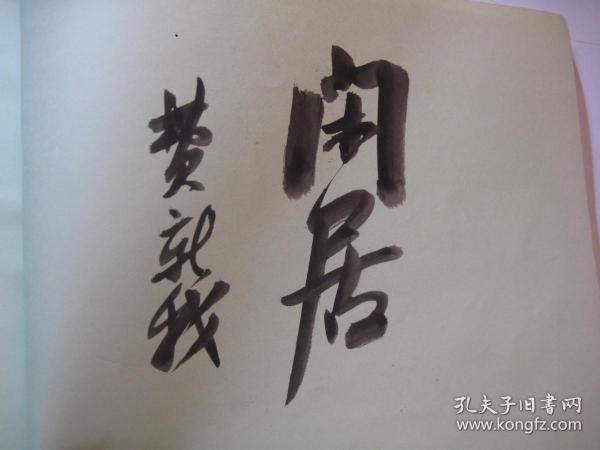 闲居
费新我
孔夫子旧書网
www.kongfz.com